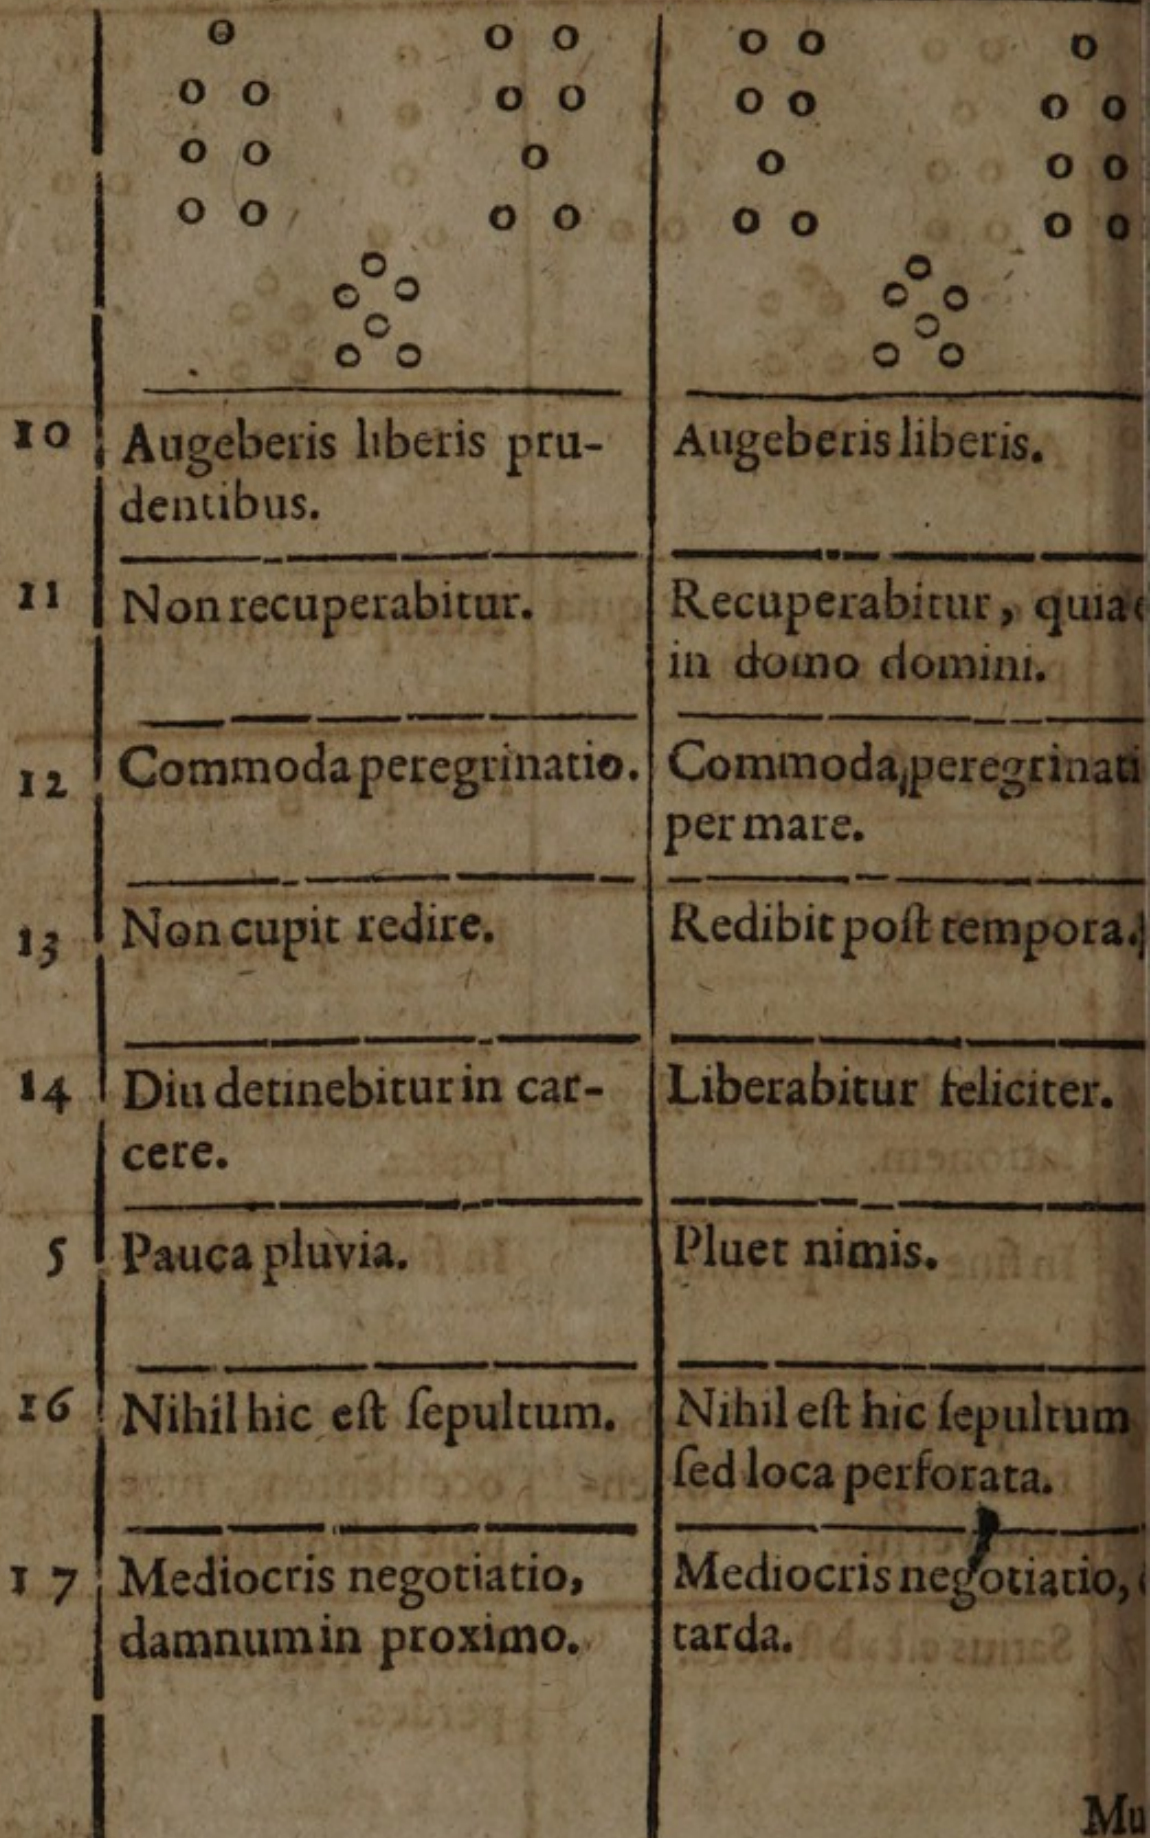 10 Augeberis liberis pru-
dentibus.
Augeberis liberis.
11 Non recuperabitur.
Recuperabitur, quia
in domo domini.
12 Commoda peregrinatio.
Commoda peregrinati
per mare.
13 Non cupit redire.
Redibit poſt tempora.
14 Diu detinebitur in car-
cere.
Liberabitur feliciter.
5 Pauca pluvia.
Pluet nimis.
16 Nihil hic eſt ſepultum.
Nihil eſt hic ſepultum
ſed loca perforata.
17 Mediocris negotiatio,
damnum in proximo.
Mediocris negotiatio,
tarda.
Mu